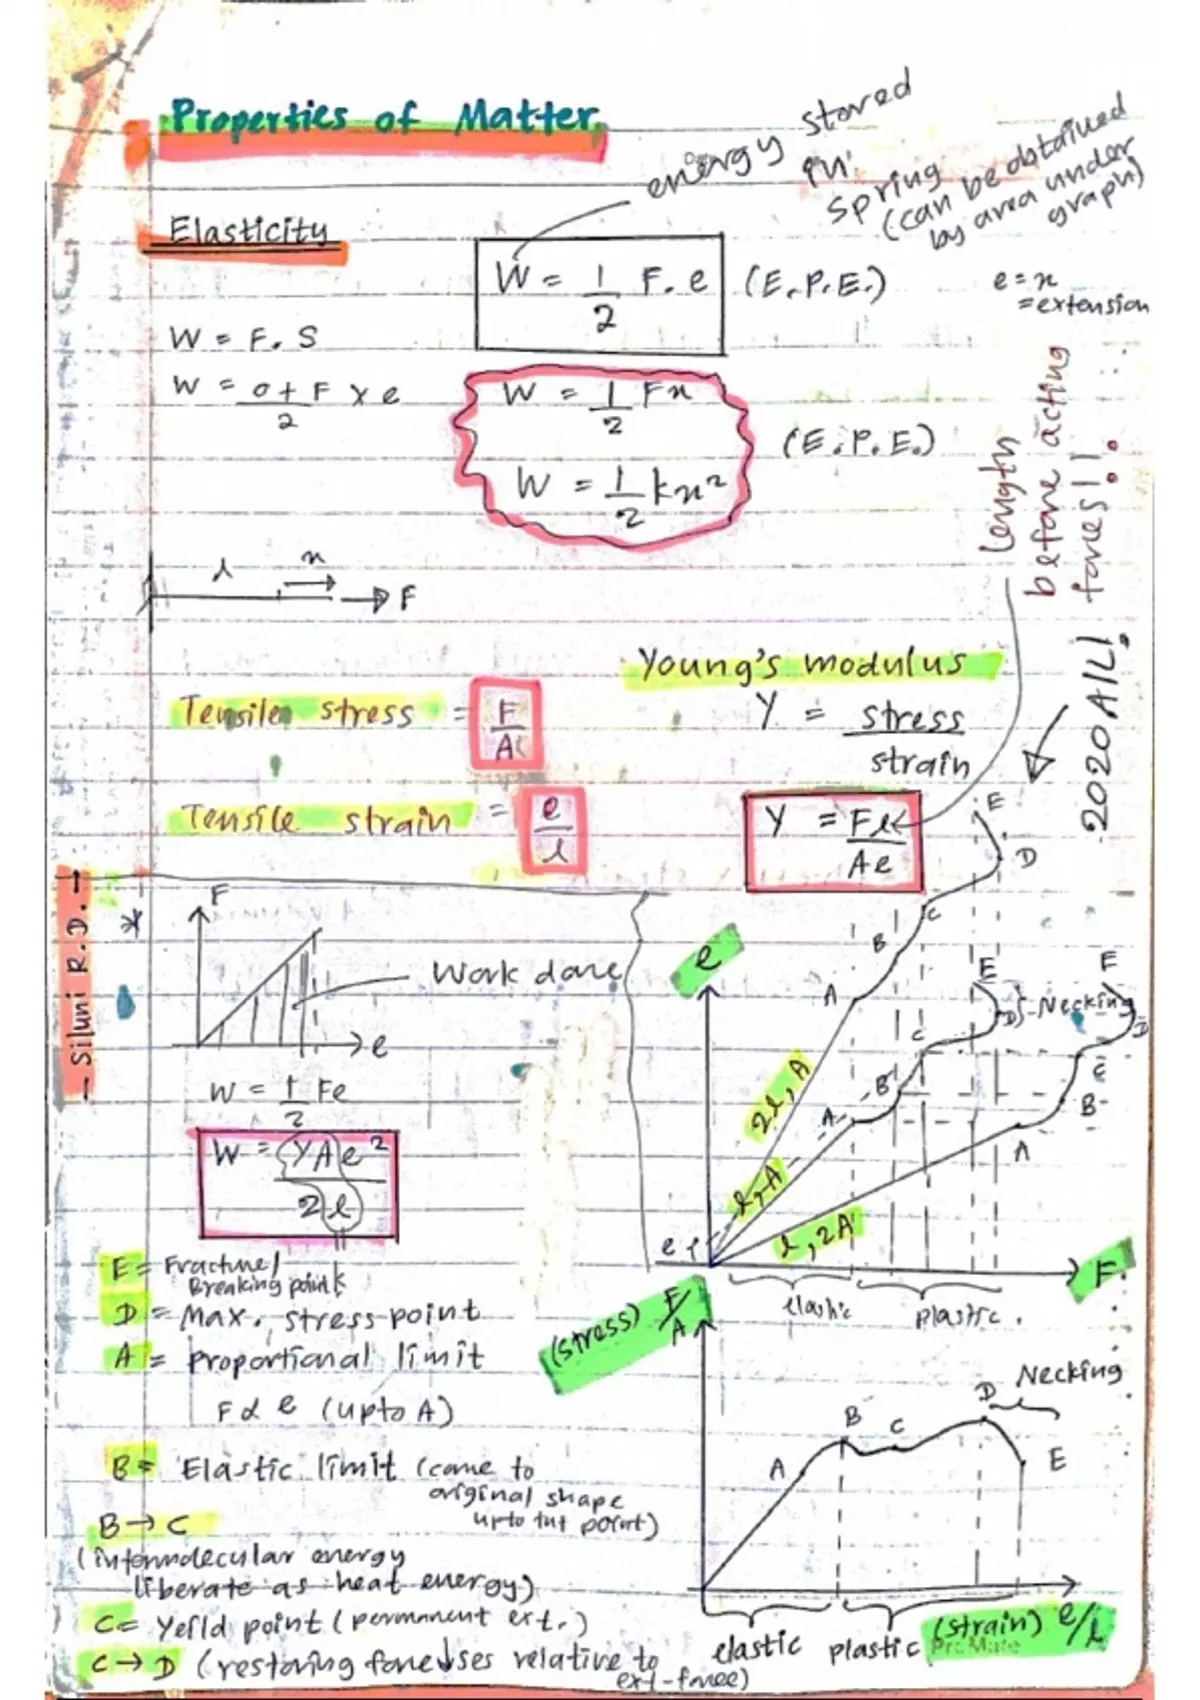 Properties of Matter
energy stored
in
spring
(can be obtained
by area under
graph)
Elasticity
W = 1/2 F. e (E.P.E.)
e = x
= extension
W = F. S
W = 0 + F/2 x e
W = 1/2 Fx
W = 1/2 kx²
(E.P.E.)
length
before acting
forces!!
2020 A/L!
l x F
Young's modulus
Tensile stress = F/A
Y = stress/strain
Tensile strain = e/l
Y = Fl/Ae
- Siluni R.D. -
*
F
Work done
e
W = 1/2 Fe
W = YAe²/2l
e
E
D
C
B
A
E
D
Necking
C
B
A
E
D
C
B
A
2l, A
l, A
l, 2A
e
F
elastic
plastic.
E = Fracture/
Breaking point
D = Max. stress point
A = proportional limit
F α e (upto A)
B = Elastic limit (come to
original shape
upto tht point)
B → C
(intermolecular energy
liberate as heat energy)
C = Yeild point (permanent ext.)
C → D (restoring force ↓ses relative to
ext-force)
(stress) F/A
A
B
C
D
Necking
E
elastic
plastic
(strain) e/l
ProMate